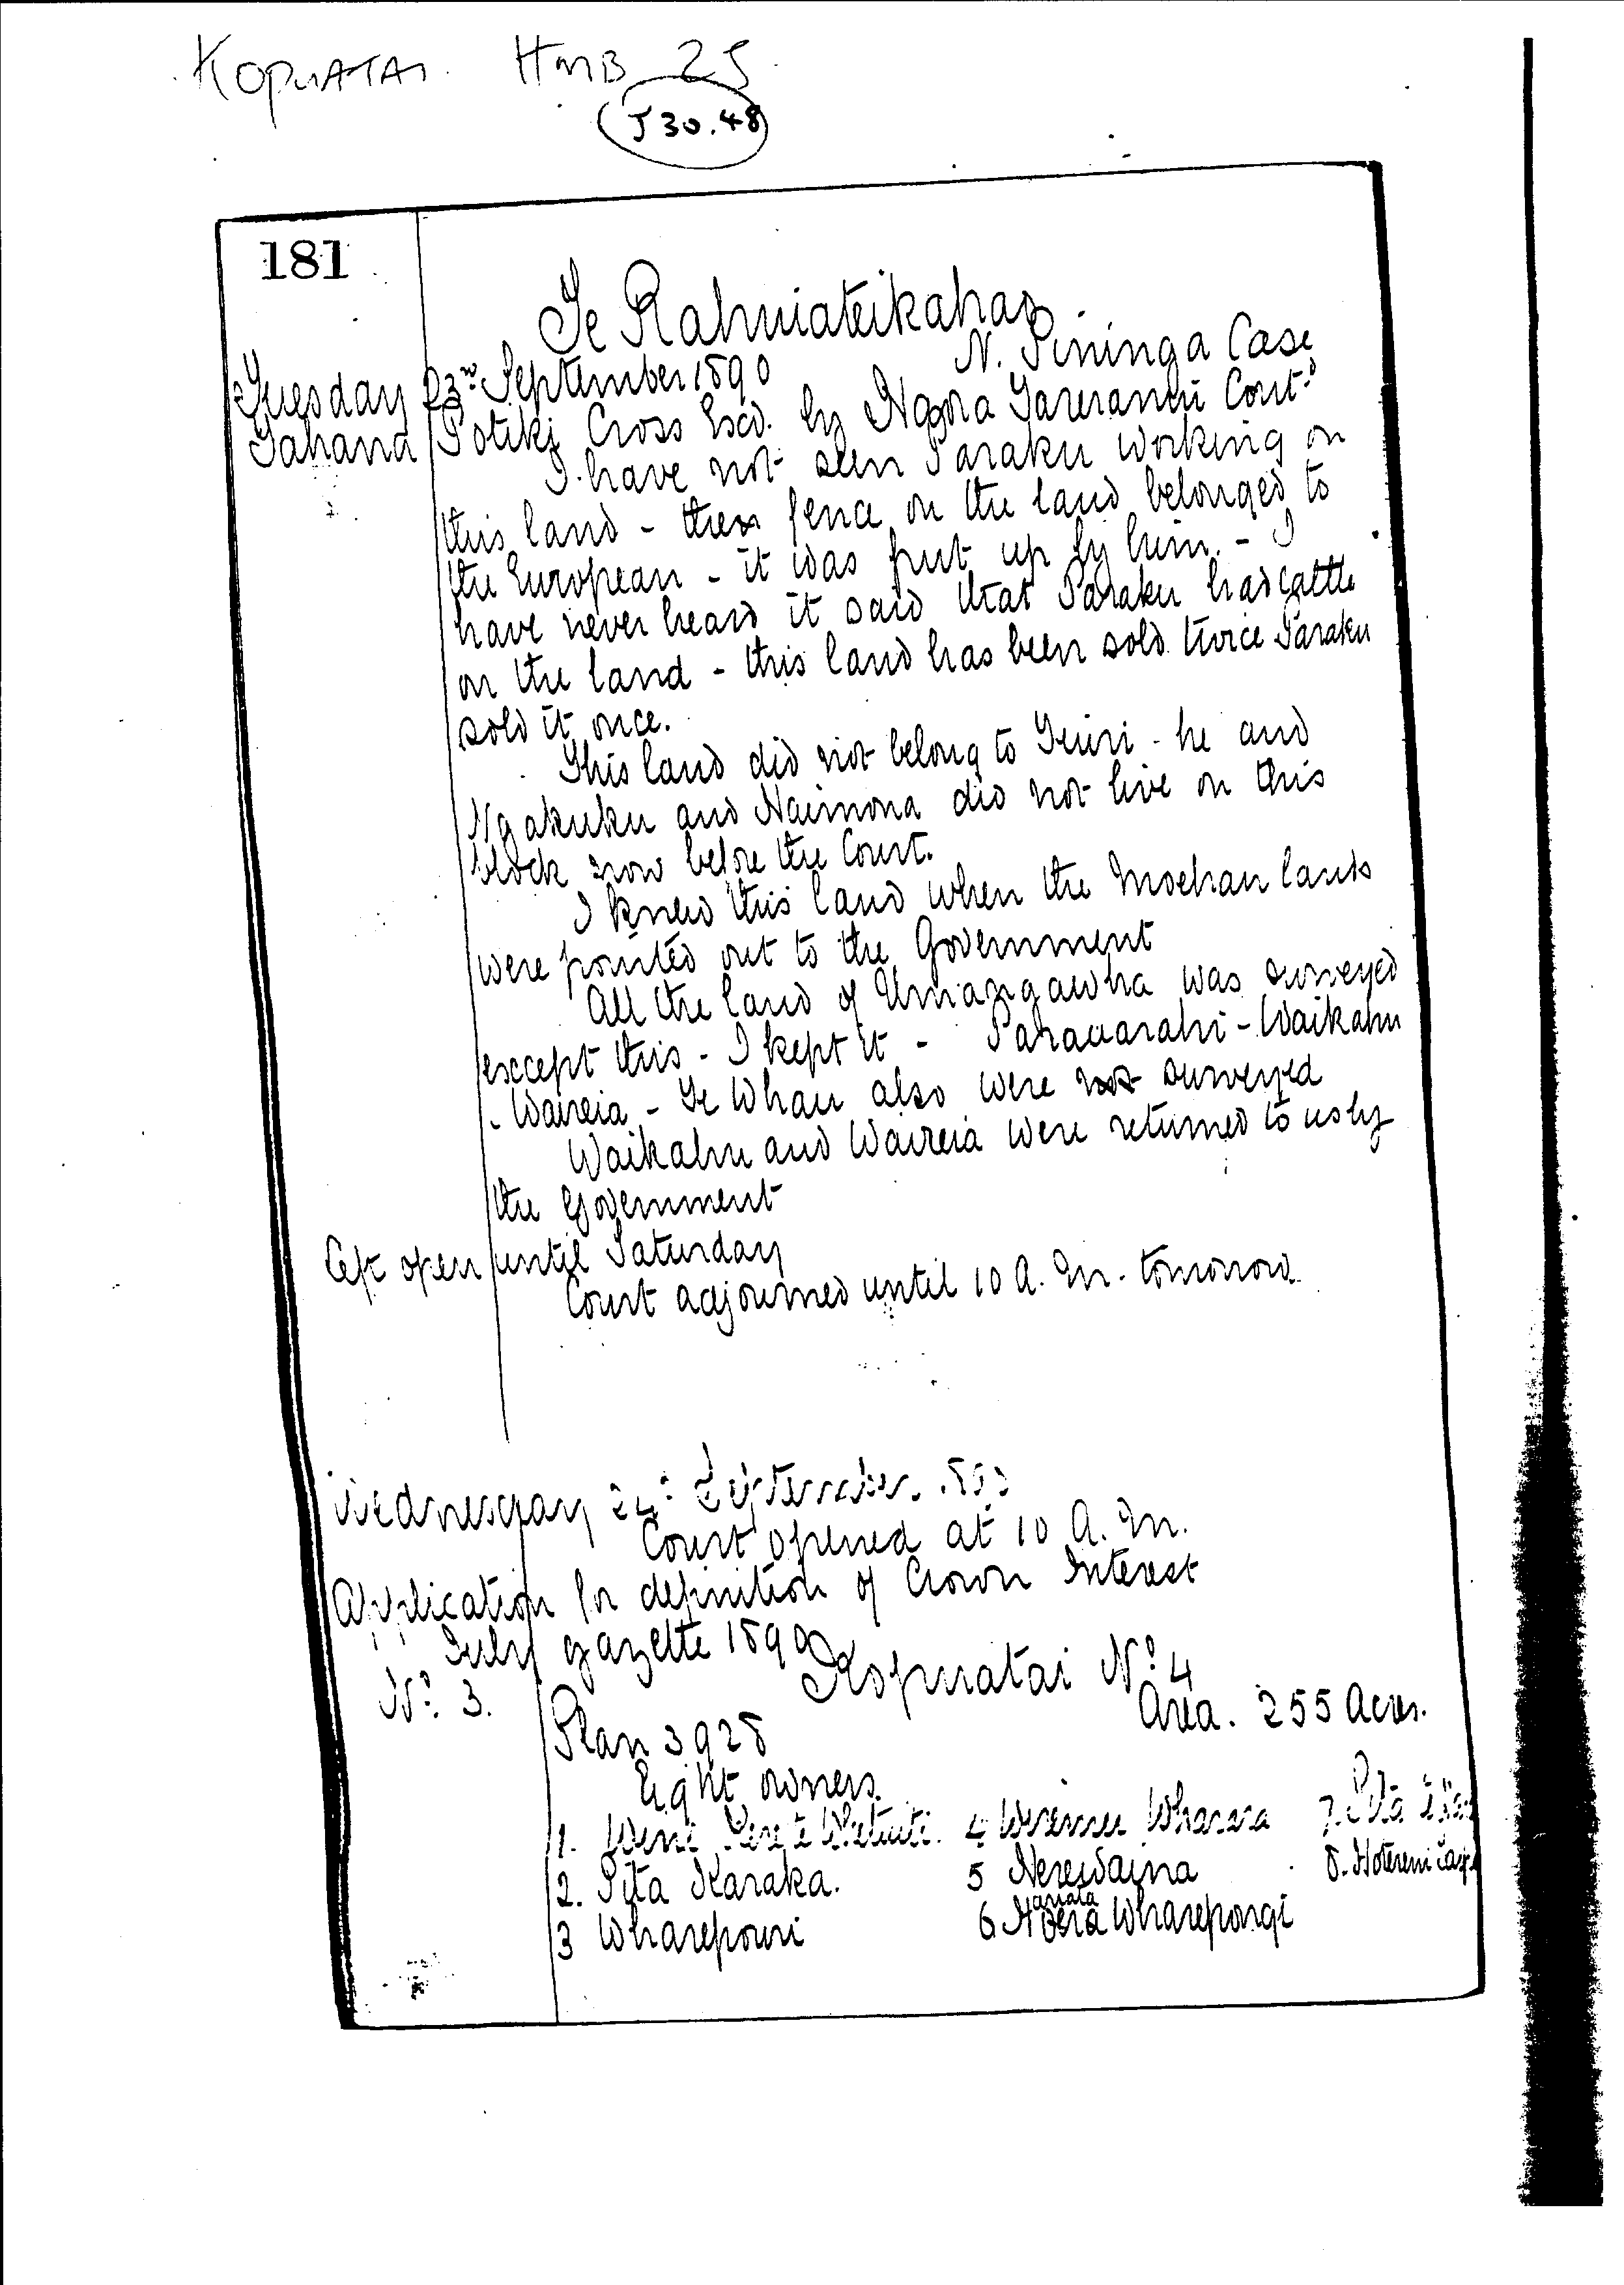 KOPUATAI HMB 25
J 30.48
181
Te Rahuiateikahao
N. Pininga Case
Tuesday 23rd September 1890
Tahana Potiki Cross Exd. by Ngora Tareranui Contd
I have not seen Paraku working on
this land - the fence on the land belonged to
the European - it was put up by him. - I
have never heard it said that Paraku had cattle
on the land - this land has been sold twice Paraku
sold it once.
This land did not belong to - he and
Ngakuku and Naimona did not live on this
block now before the Court.
I knew this land when the Moehau lands
were pointed out to the Government
All the land of Umangawha was surveyed
except this - I kept it - - Waikahu
- Waireia - Te Whau also were not surveyed
Waikahu and Waireia were returned to us by
the Government
Left open until Saturday
Court adjourned until 10 A.M. tomorrow
Wednesday 24th September 1890
Court opened at 10 A.M.
Application for definition of Crown Interest
July gazette 1890
Kopuatai No. 4
No. 3.
Area. 255 Acres.
Plan 3928
Eight owners.
1. te 4 Wharara 7. Pita
2. Pita Karaka. 5 8. Hotereni
3 Wharepouri 6 Wharepongi